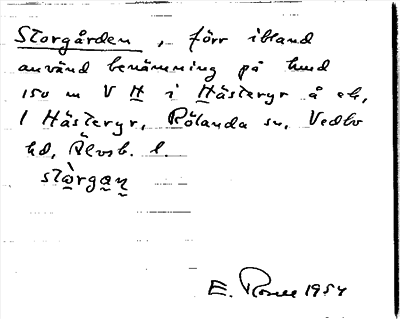 Storgården, förr ibland
använd benämning på hmd
150 m V H i Hästeryr å ek,
1 Hästeryr, Rölanda sn, Vedbo
hd, Älvsb. l.
stòrgaṇ
E. 1954